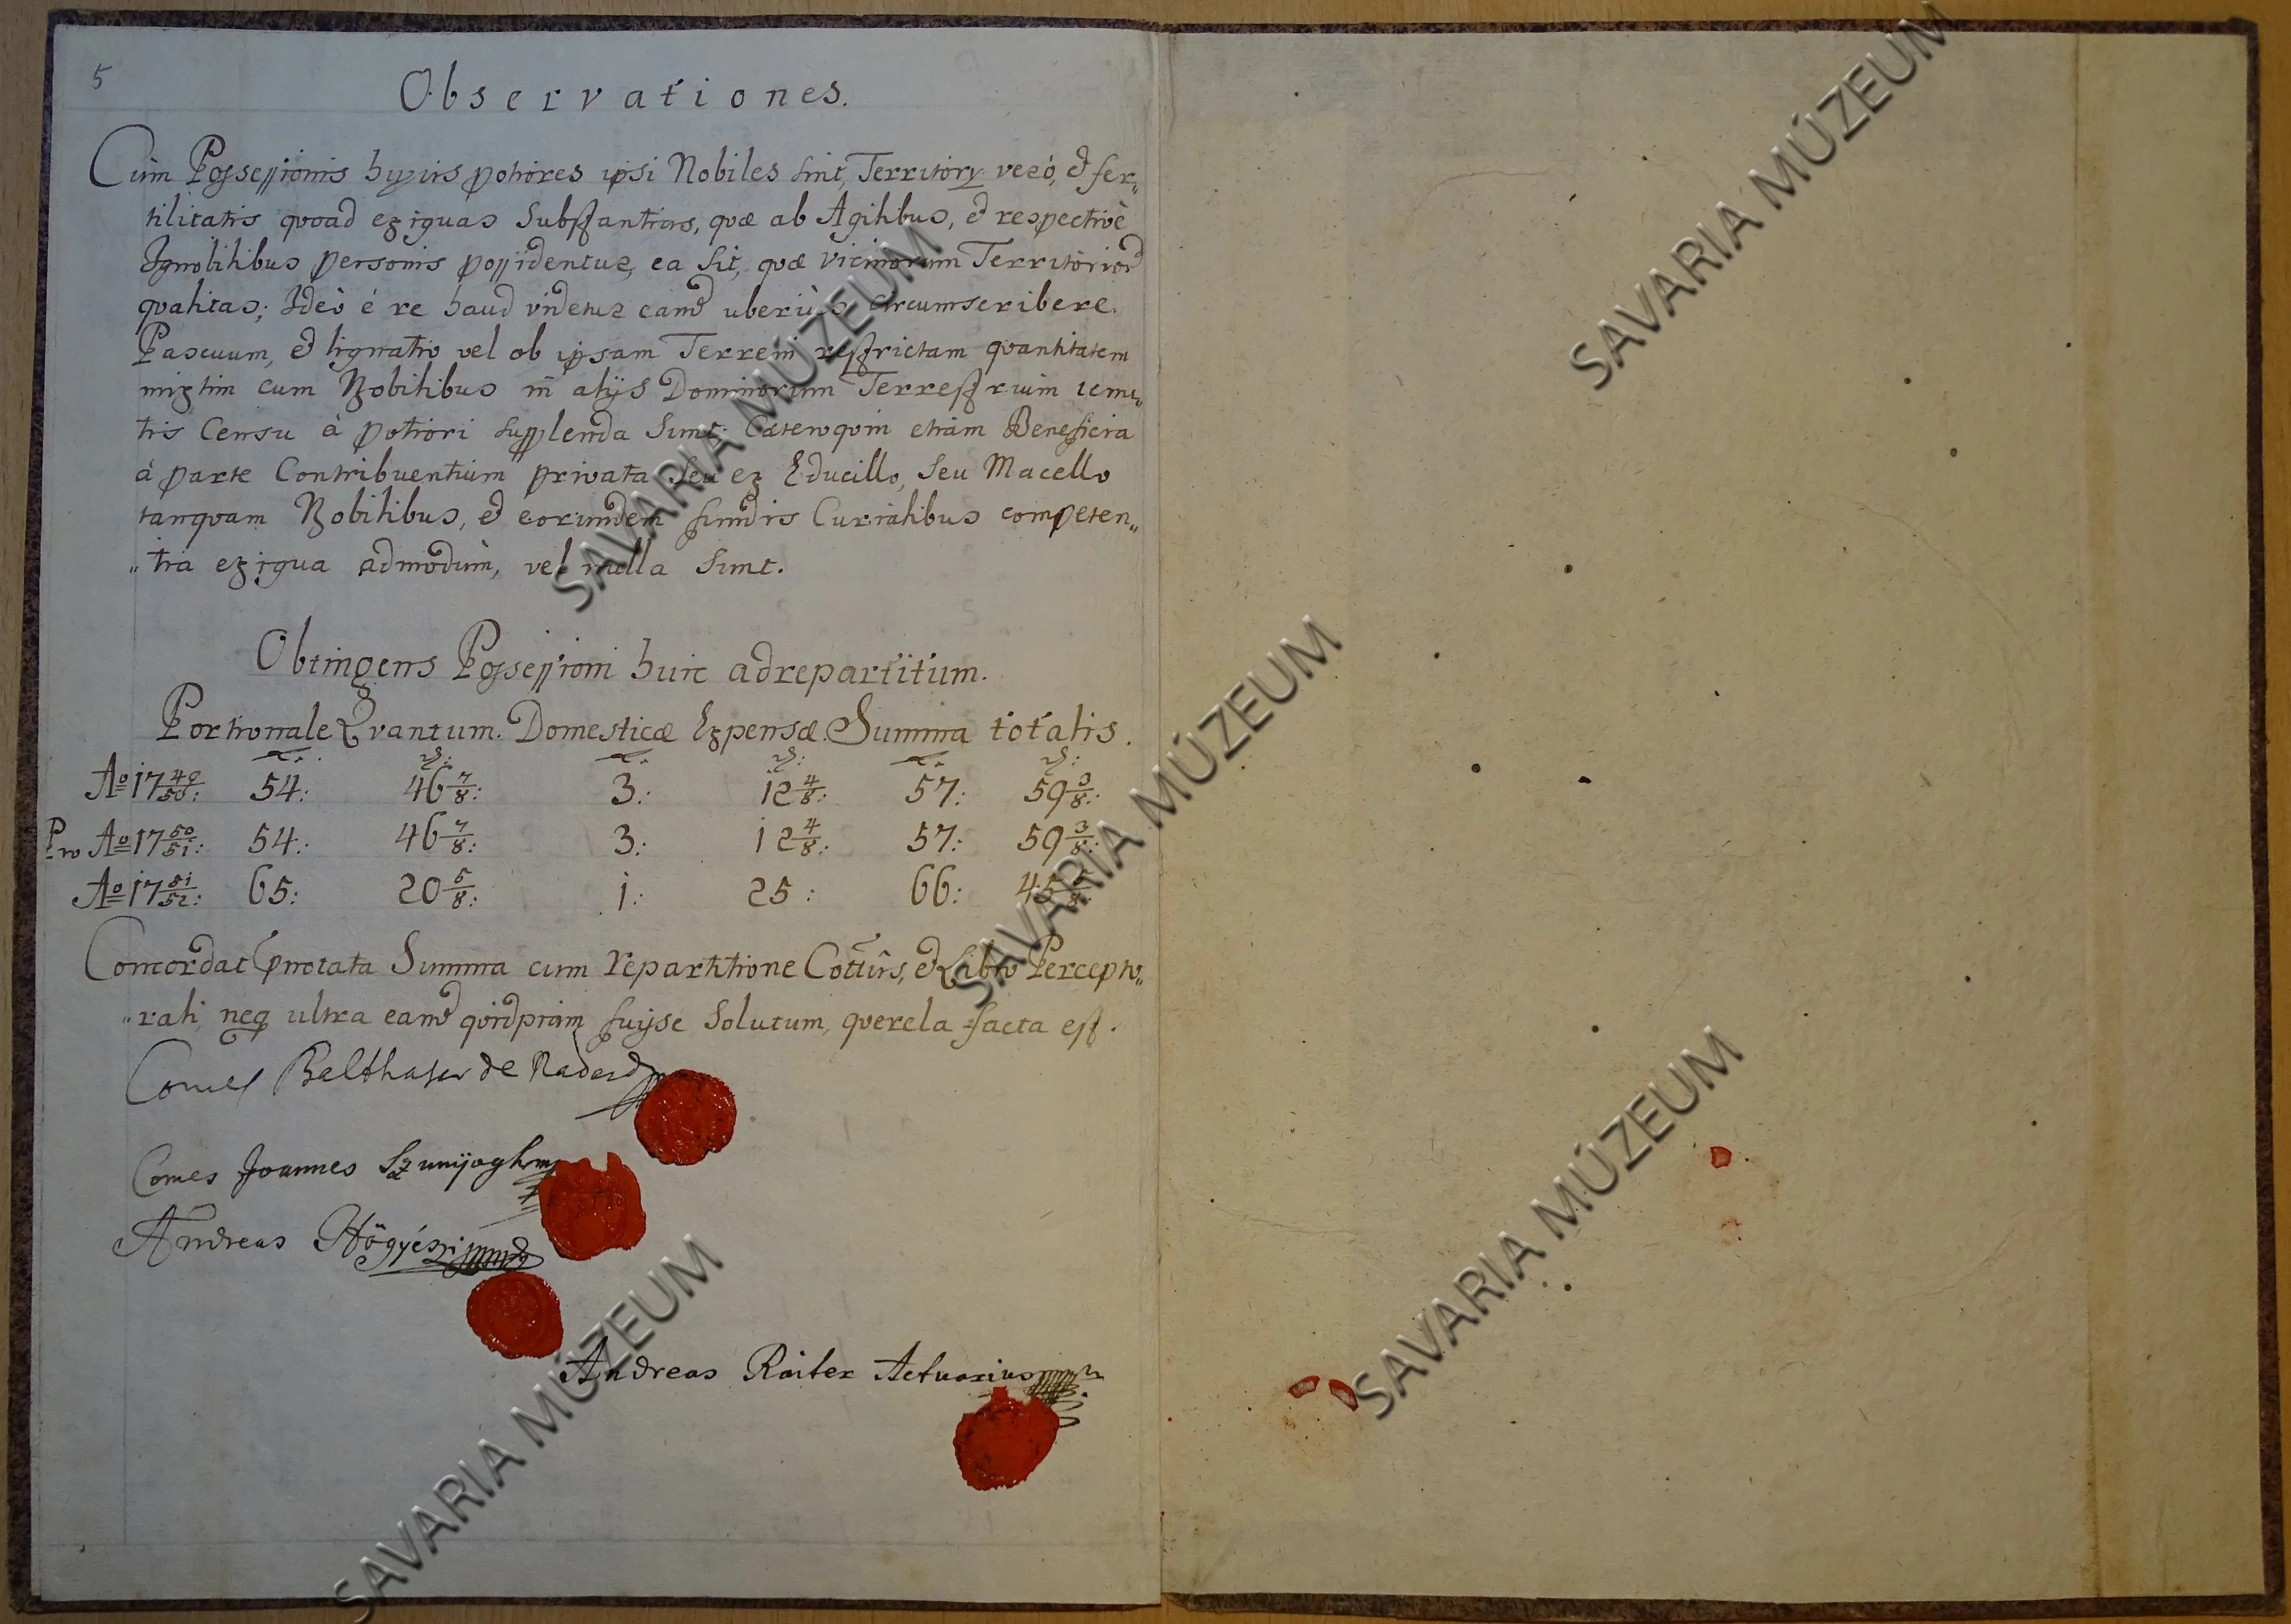 5
Observationes.
Cùm Possessionis hujus potiores ipsi Nobiles sint, Territory verò, et fer„
tilitatis quoad exiguas Substantias, quæ ab Agilibus, et respectivè
Ignobilibus personis possidentur, ea sit, quæ Vicinorum Territoriorũ
qualitas; Ideò é re haud videtur eamd uberiùs circumscribere.
Pascuum, et lignatio vel ob ipsam Terreni restrictam quantitatem
mixtim cum Nobilibus in alijs Dominorum Terrestrium
Censu à potiori supplenda sunt. Cæteroquin etiam Beneficia
à parte Contribuentium privata seu ex Educillo, seu Macello
tanquam Nobilibus, et eorundem fundis Curialibus competen„
„tia exigua admodùm, vel nulla sunt.
Obtingens Possessioni huic adrepartitum.
Portionale Qvantum. Domesticæ Expensæ. Summa totalis.
Aº 17 49/50: 54: 46 7/8: 3: 12 4/8: 57: 59 3/8:
Pro Aº 17 50/51: 54: 46 7/8: 3: 12 4/8: 57: 59 3/8:
Aº 17 51/52: 65: 20 5/8: 1: 25: 66: 45 5/8:
Concordat pnotata Summa cum repartitione Cottûs, et Libro Percepto„
„rali, neq ultra eamd qvidpiam fuisse Solutum, querela facta est.
Comes Balthasar de
Comes Joannes Szunyogh mp
Andreas Högyészi mp
Andreas Raiter Actuarius mp
SAVARIA MÚZEUM
SAVARIA MÚZEUM
SAVARIA MÚZEUM
SAVARIA MÚZEUM
SAVARIA MÚZEUM